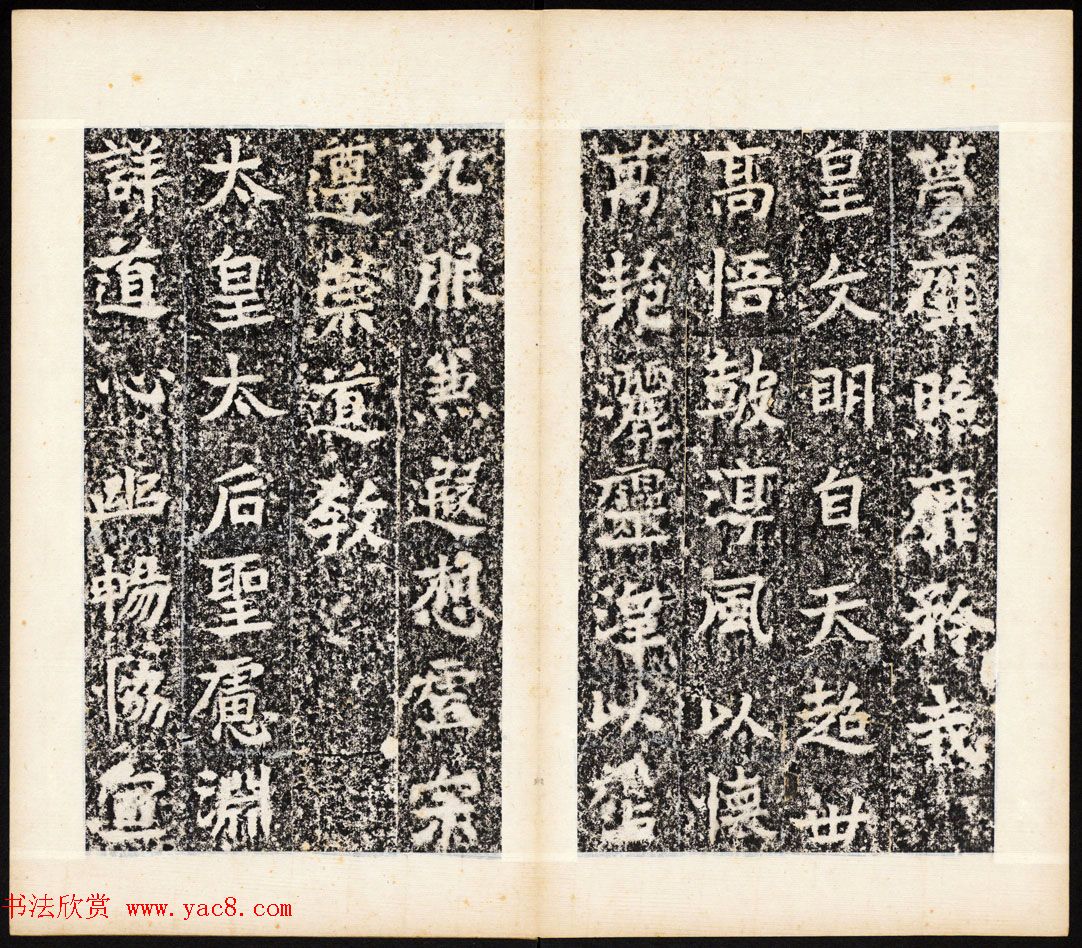 夢照靡矜我
皇文明自天超世
高悟鼓淳風以懷
萬邦灑靈澤以霑
九服兼遐想虛宗
遵崇道教
太皇太后聖慮淵
詳道心幽暢協宣
书法欣赏 www.yac8.com